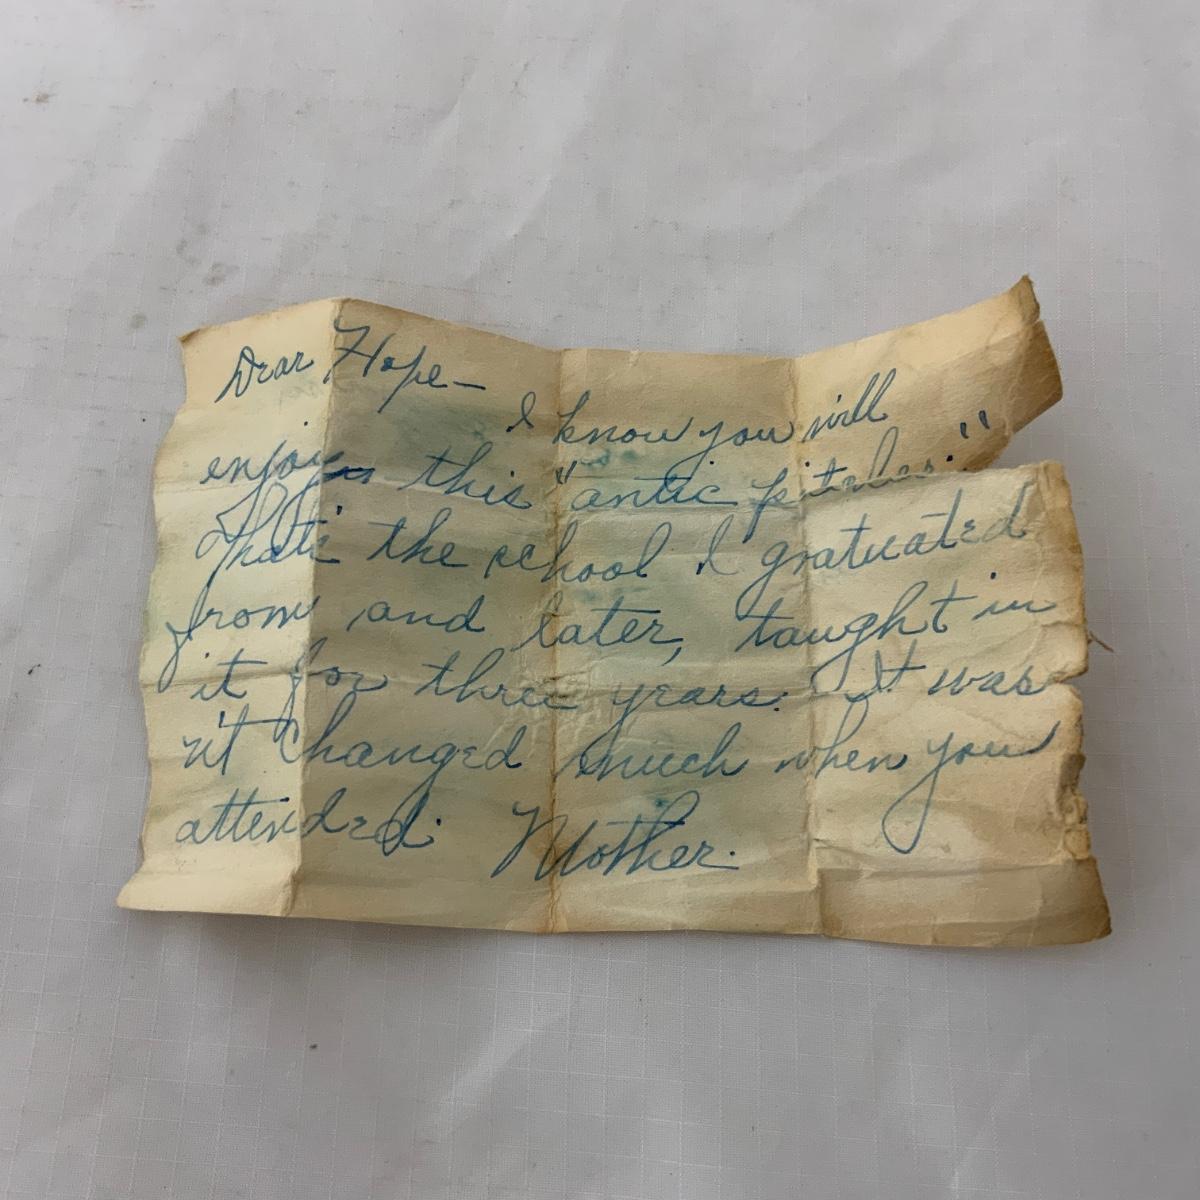 Dear Hope—
I know you will
enjoy this "antic pitcher."
That's the school I gratuated
from and later, taught in
it for three years. It was
n't changed much when you
attended. Mother.